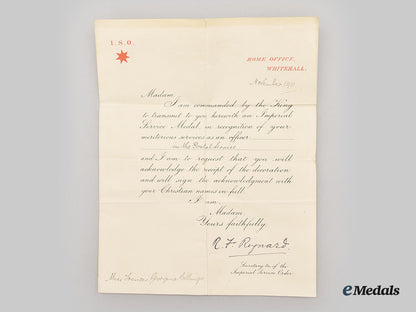 I.S.O.
HOME OFFICE,
WHITEHALL.
November 1911
Madam,
I am commanded by the King
to transmit to you herewith an Imperial
Service Medal, in recognition of your
meritorious services as an officer
in the Postal Service
and I am to request that you will
acknowledge the receipt of the decoration
and will sign the acknowledgment with
your Christian names in full.
I am,
Madam
Yours faithfully,
R. F. Reynard.
Secretary to the
Imperial Service Order.
Miss Frances
eMedals